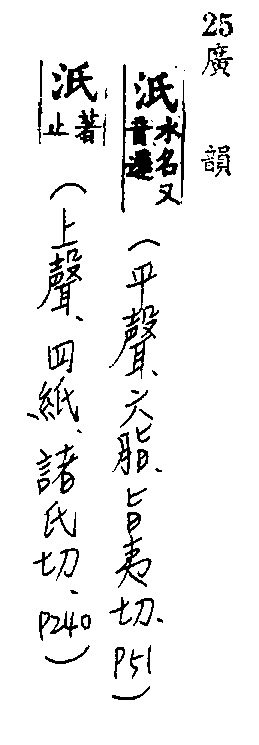 25廣韻
泜水名又音遲(平聲、六脂、旨夷切、P51)
汦著止(上聲、四紙、諸氏切、P240)